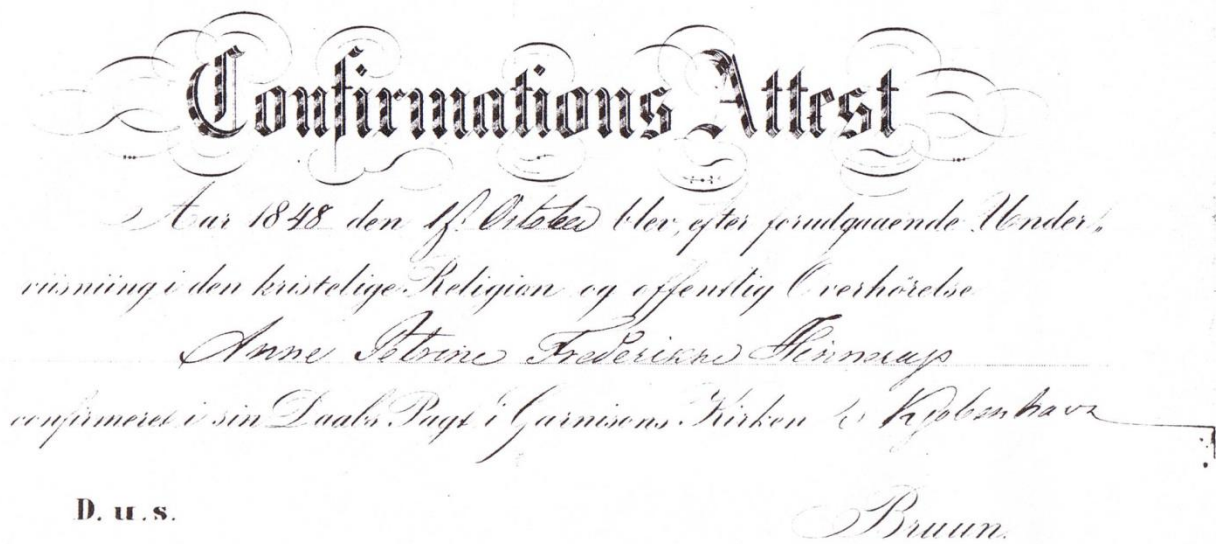 Confirmations Attest
Aar 1848 den October blev, efter forudgaaende Under„
viisning i den kristelige Religion og offentlig Overhörelse
Anne Petrine Frederikke
confirmeret i sin Daabs Pagt i Garnisons Kirken i Kjøbenhavn
D. u. s.
Bruun.